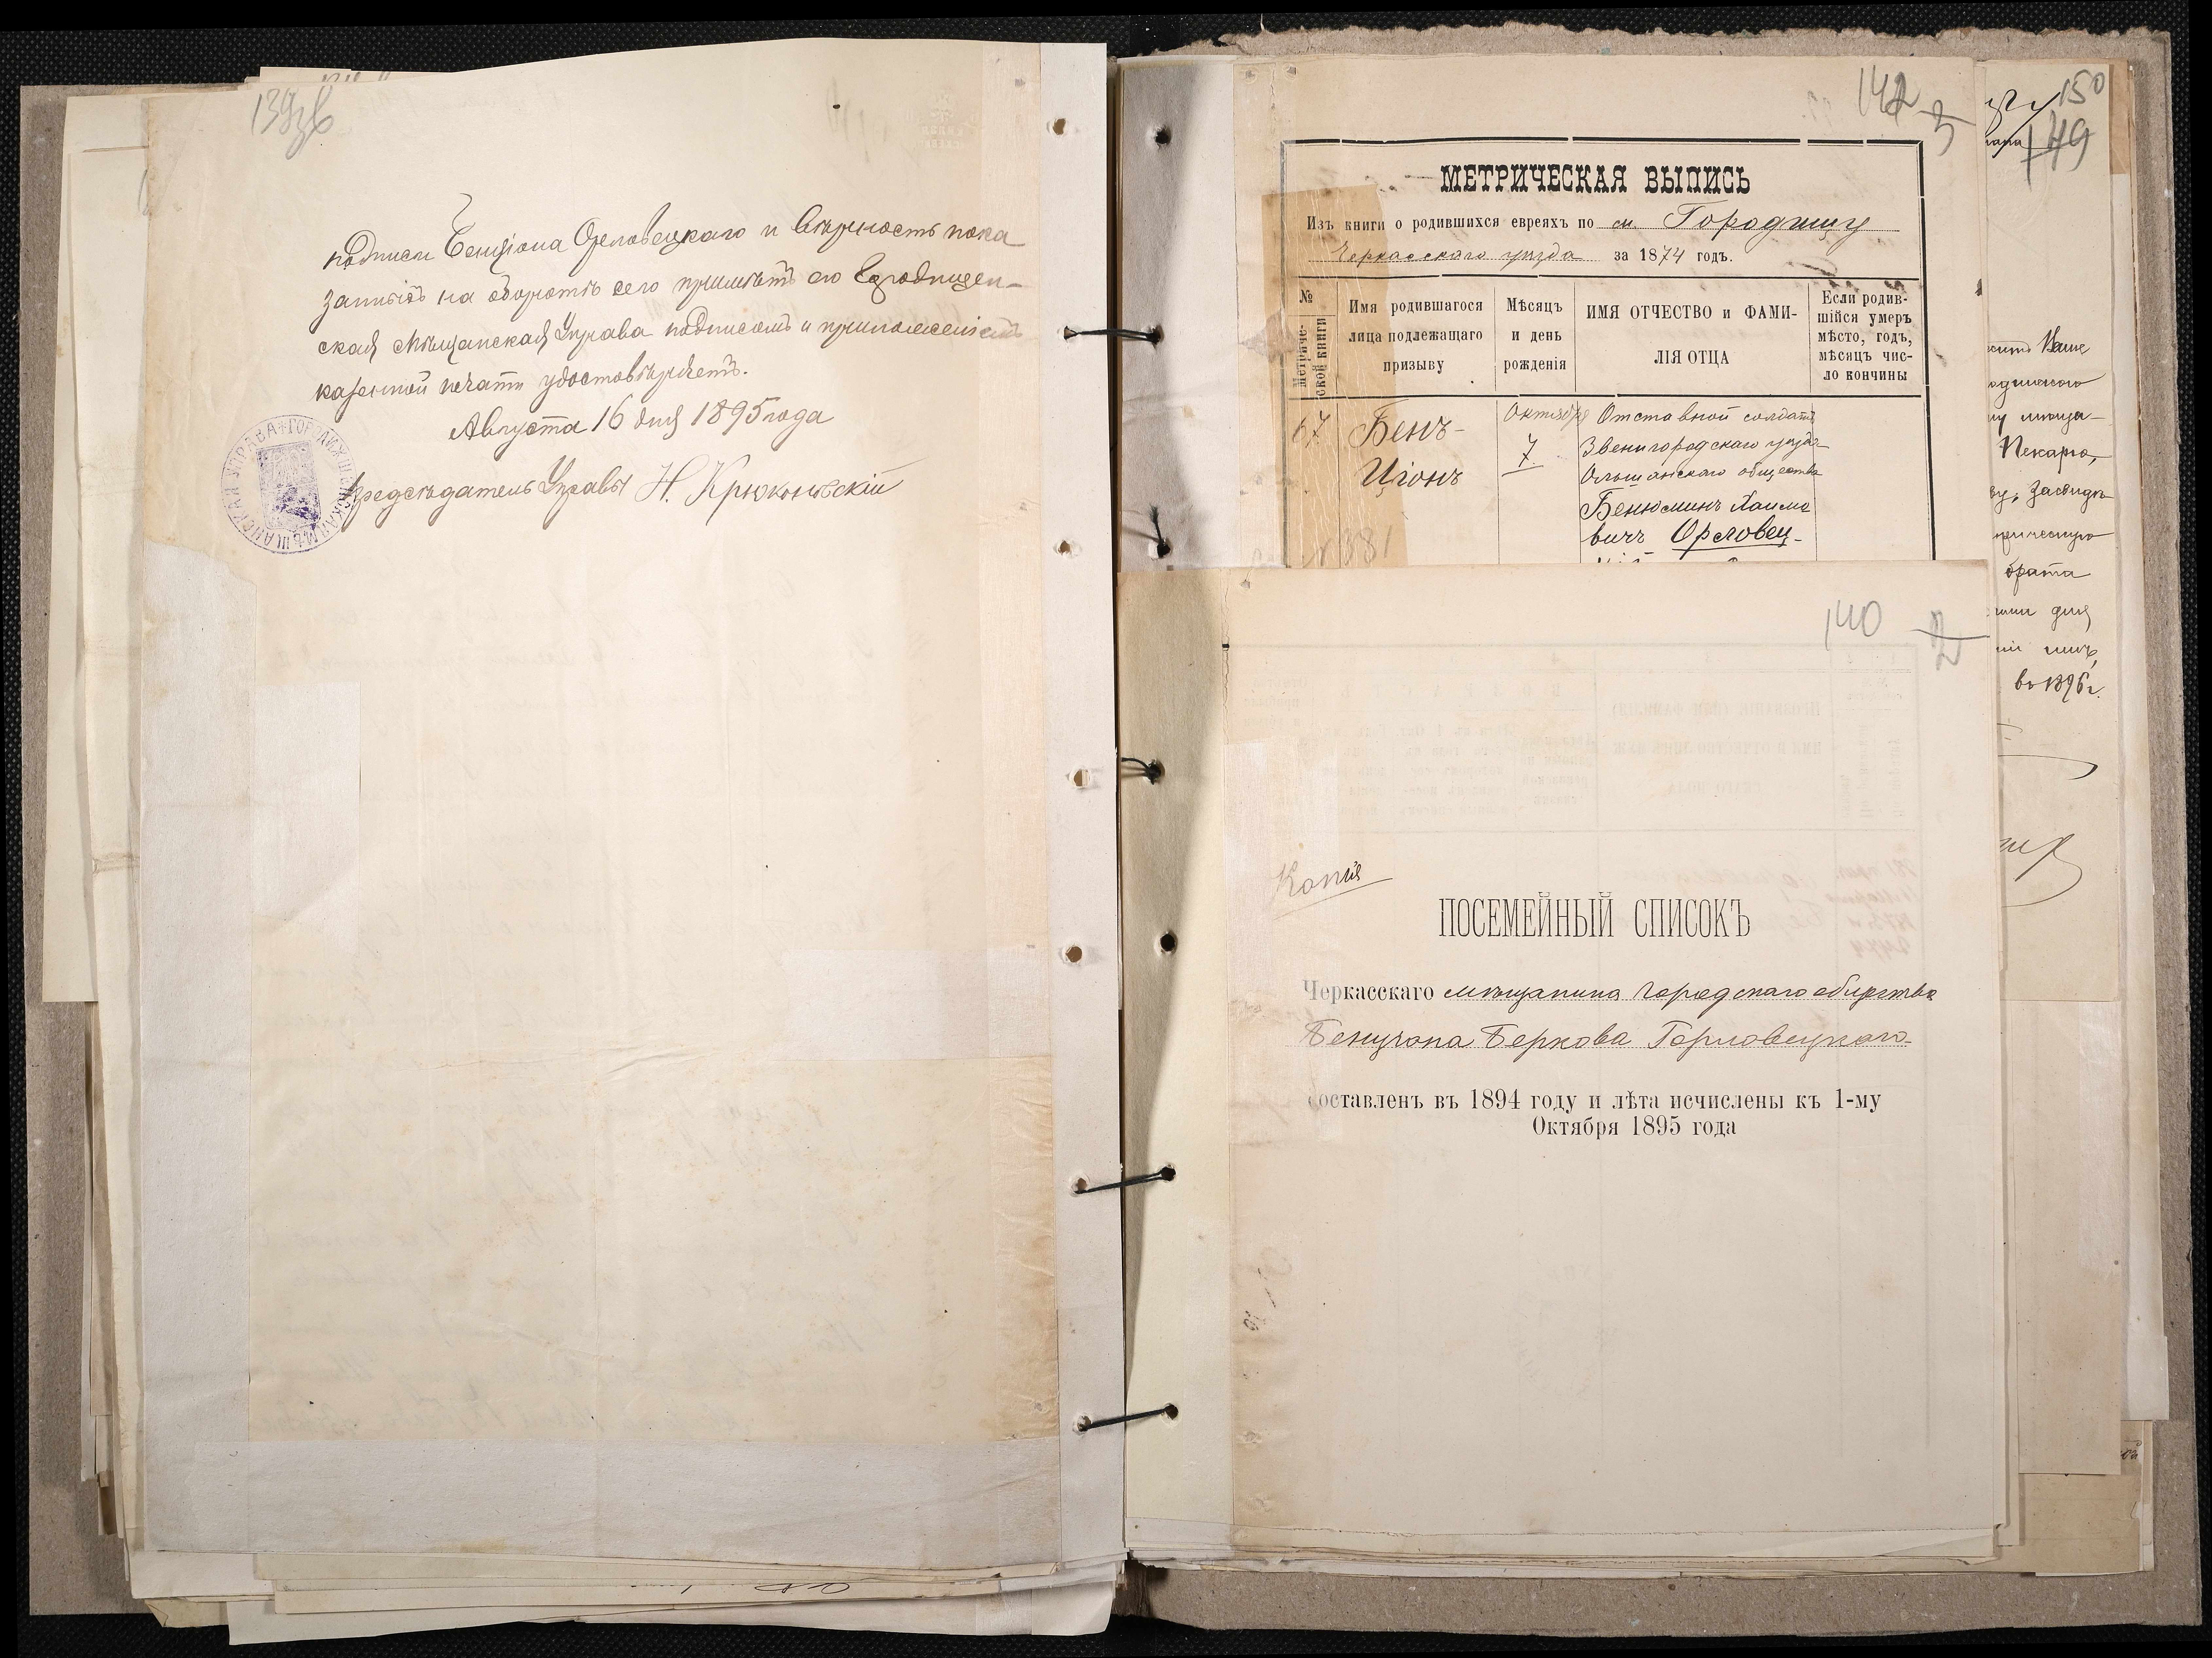 139об
подписи Бенціона Орловецкаго и вѣрность пока
заній на оборотѣ сего примѣтъ его Городищен-
ская Мѣщанская Управа подписомъ и приложеніемъ
казенной печати удостовѣряетъ.
Августа 16 дня 1895 года
Предсѣдатель Управы Н. Крюковскій
142
3
МЕТРИЧЕСКАЯ ВЫПИСЬ
Изъ книги о родившихся евреяхъ по м. Городищу
Черкасскаго уѣзда за 1874 годъ.
№ Метриче-ской книги
Имя родившагося лица подлежащаго призыву
Мѣсяцъ и день рожденія
ИМЯ ОТЧЕСТВО и ФАМИ-ЛІЯ ОТЦА
Если родив-шійся умеръ мѣсто, годъ, мѣсяцъ чис-ло кончины
67
Бенъ-
Ціонъ
Октября
7
Отставной солдатъ
Звенигородскаго уѣзда
Ольшанскаго общества
Бенюминъ Хаимо
вичъ Орловец-
№ 381
140
2
Копія
ПОСЕМЕЙНЫЙ СПИСОКЪ
Черкасскаго мѣщанина Городскаго общества
Бенціона Беркова Горловецкаго
составленъ въ 1894 году и лѣта исчислены къ 1-му
Октября 1895 года
150
149
Ваше
мѣща-
Пекарю,
Засвидѣ
брата
для
въ 1896 г.